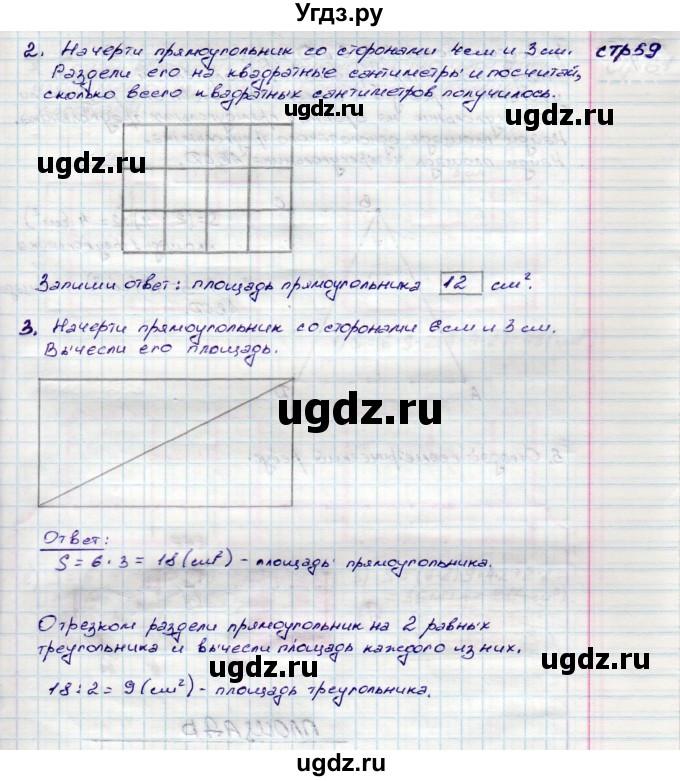 Угдз.ру
2. Начерти прямоугольник со сторонами 4см и 3см. стр59
Раздели его на квадратные сантиметры и посчитай,
сколько всего квадратных сантиметров получилось.
ugdz.ru ugdz.ru
ugdz.ru
Запиши ответ: площадь прямоугольника 12 см².
3. Начерти прямоугольник со сторонами 6см и 3 см.
Вычесли его площадь.
ugdz.ru ugdz.ru
Ответ:
S = 6 · 3 = 18 (см²) - площадь прямоугольника.
ugdz.ru
Отрезком раздели прямоугольник на 2 равных
треугольника и вычесли площадь каждого из них.
ugdz.ru
18 : 2 = 9 (см²) - площадь треугольника.
ПЛОЩАДЬ
ugdz.ru